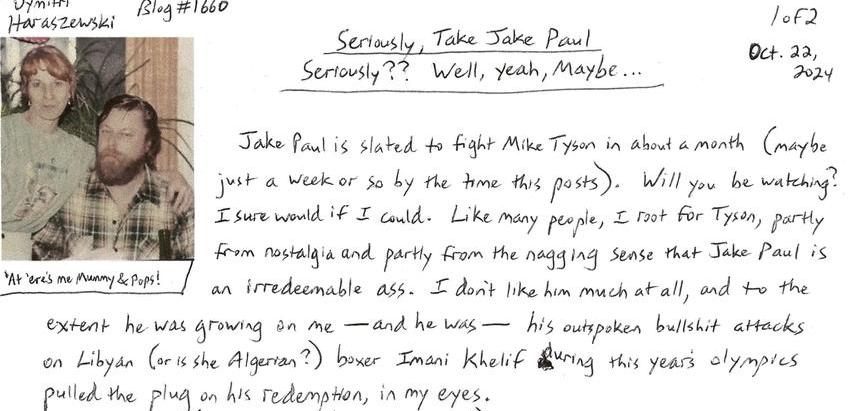 Dymitri
Haraszewski
Blog #1660
1 of 2
Oct. 22,
2024
Seriously, Take Jake Paul
Seriously?? Well, yeah, Maybe...
Jake Paul is slated to fight Mike Tyson in about a month (maybe
just a week or so by the time this posts). Will you be watching?
I sure would if I could. Like many people, I root for Tyson, partly
from nostalgia and partly from the nagging sense that Jake Paul is
an irredeemable ass. I don't like him much at all, and to the
extent he was growing on me — and he was — his outspoken bullshit attacks
on Libyan (or is she Algerian?) boxer Imani Khelif during this year's olympics
pulled the plug on his redemption, in my eyes.
'At 'ere's me Mummy & Pops!